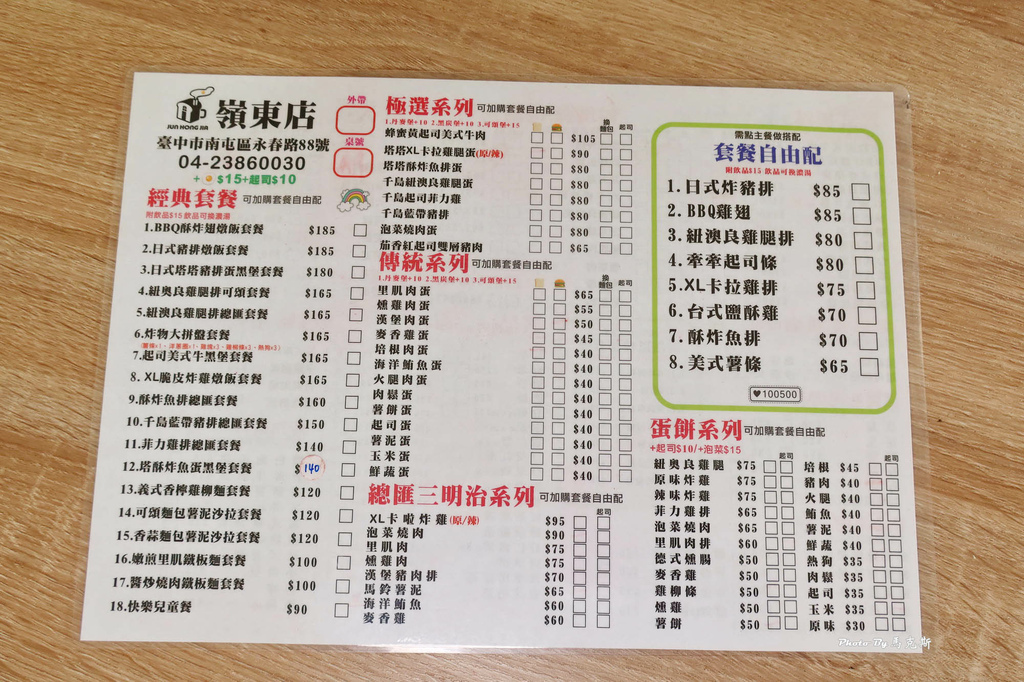 JUN HONG JIA
嶺東店
外帶
臺中市南屯區永春路88號
桌號
04-23860030
+ $15+起司$10
經典套餐 可加購套餐自由配
附飲品$15 飲品可換濃湯
1.BBQ酥炸翅燉飯套餐 $185
2.日式豬排燉飯套餐 $185
3.日式塔塔豬排蛋黑堡套餐 $180
4.紐奧良雞腿排可頌套餐 $165
5.紐澳良雞腿排總匯套餐 $165
6.炸物大拼盤套餐 $165
7.起司美式牛黑堡套餐 $165
8.XL脆皮炸雞燉飯套餐 $165
9.酥炸魚排總匯套餐 $160
10.千島藍帶豬排總匯套餐 $150
11.菲力雞排總匯套餐 $140
12.塔酥炸魚蛋黑堡套餐 $140
13.義式香檸雞柳麵套餐 $120
14.可頌麵包薯泥沙拉套餐 $120
15.香蒜麵包薯泥沙拉套餐 $120
16.嫩煎里肌鐵板麵套餐 $100
17.醬炒燒肉鐵板麵套餐 $100
18.快樂兒童餐 $90
極選系列 可加購套餐自由配
1.丹麥堡+10 2.黑炭堡+10 3.可頌堡+15
換麵包 起司
蜂蜜黃起司美式牛肉 $105
塔塔XL卡拉雞腿蛋(原/辣) $90
塔塔酥炸魚排蛋 $80
千島紐澳良雞腿蛋 $80
千島起司菲力雞 $80
千島藍帶豬排 $80
泡菜燒肉蛋 $80
茄香紅起司雙層豬肉 $65
傳統系列 可加購套餐自由配
1.丹麥堡+10 2.黑炭堡+10 3.可頌堡+15
換麵包 起司
里肌肉蛋 $65
燻雞肉蛋 $55
漢堡肉蛋 $50
麥香雞蛋 $45
培根肉蛋 $40
海洋鮪魚蛋 $40
火腿肉蛋 $40
肉鬆蛋 $40
薯餅蛋 $40
起司蛋 $40
薯泥蛋 $40
玉米蛋 $40
鮮蔬蛋 $40
總匯三明治系列 可加購套餐自由配
起司
XL卡啦炸雞(原/辣) $95
泡菜燒肉 $90
里肌肉 $75
燻雞肉 $75
漢堡豬肉排 $70
馬鈴薯泥 $65
海洋鮪魚 $60
麥香雞 $60
需點主餐做搭配
套餐自由配
附飲品$15 飲品可換濃湯
1.日式炸豬排 $85
2.BBQ雞翅 $85
3.紐澳良雞腿排 $80
4.牽牽起司條 $80
5.XL卡拉雞排 $75
6.台式鹽酥雞 $70
7.酥炸魚排 $70
8.美式薯條 $65
♥100500
蛋餅系列 可加購套餐自由配
+起司$10/+泡菜$15
起司
紐奧良雞腿 $75
原味炸雞 $75
辣味炸雞 $75
菲力雞排 $65
泡菜燒肉 $65
里肌肉排 $60
德式燻腸 $50
麥香雞 $50
雞柳條 $50
燻雞 $50
薯餅 $50
起司
培根 $45
豬肉 $40
火腿 $40
鮪魚 $40
薯泥 $40
鮮蔬 $40
熱狗 $35
肉鬆 $35
起司 $35
玉米 $35
原味 $30
Photo By 馬克斯